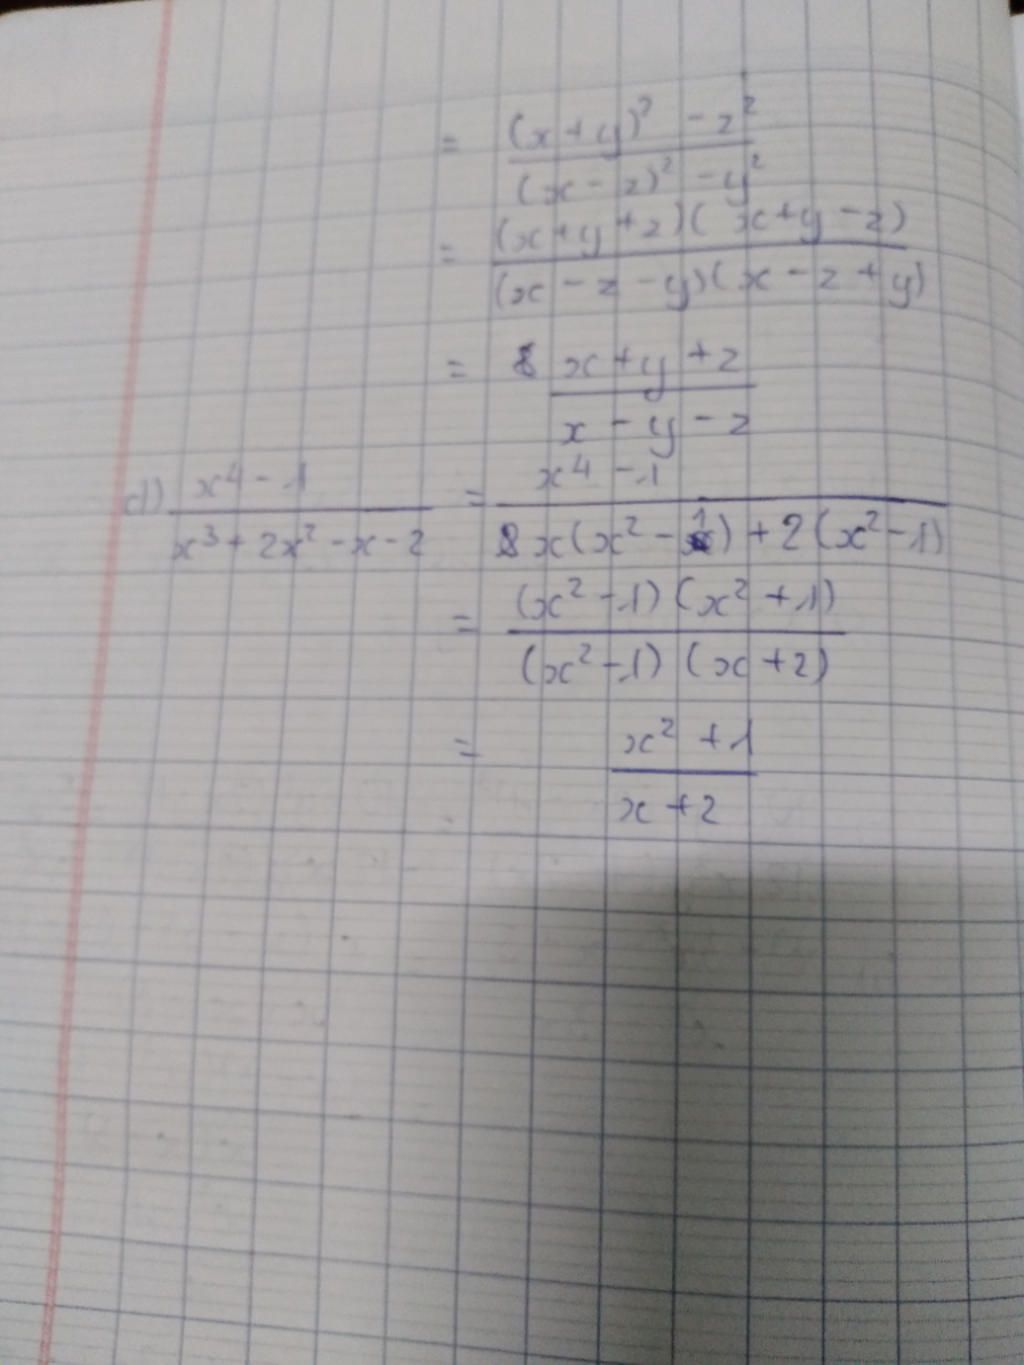 = \frac{(x+y)^2 - z^2}{(x-z)^2 - y^2}
= \frac{(x+y+z)(x+y-z)}{(x-z-y)(x-z+y)}
= \frac{x+y+z}{x-y-z}
d) \frac{x^4-1}{x^3+2x^2-x-2} = \frac{x^4-1}{x(x^2-1)+2(x^2-1)}
= \frac{(x^2-1)(x^2+1)}{(x^2-1)(x+2)}
= \frac{x^2+1}{x+2}